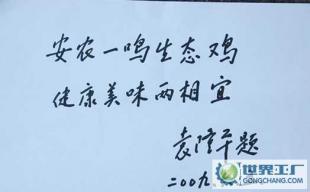 安农一鸣生态鸡
健康美味两相宜
袁隆平题
二00九
世界工厂
GONGCHANG.COM